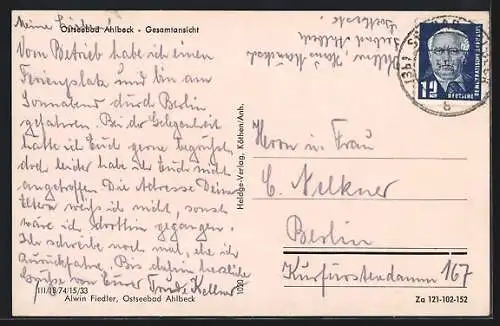 Meine Lieben!
Ostseebad Ahlbeck - Gesamtansicht
Vom Betrieb habe ich einen
Ferienplatz und bin am
Sonnabend durch Berlin
gefahren. Bei der Gelegenheit
hätte ich Euch gerne begrüßt,
doch leider habe ich Euch nicht
angetroffen. Die Adresse Deiner
Eltern weiß ich nicht, sonst
wäre ich dorthin gegangen.
Ich schreibe noch mal, ehe ich
zurückfahre. Bis dahin herzliche
Grüße von Eurer Trude Kellner
III/18/74/15/33
Alwin Fiedler, Ostseebad Ahlbeck
Heldge-Verlag, Köthen/Anh.
1020
Seebad Ahlbeck
12
DEUTSCHE
DEMOKRATISCHE REPUBLIK
b
Herrn u Frau
C. Nelkner
Berlin
Kurfürstendamm 167
Za 121-102-152